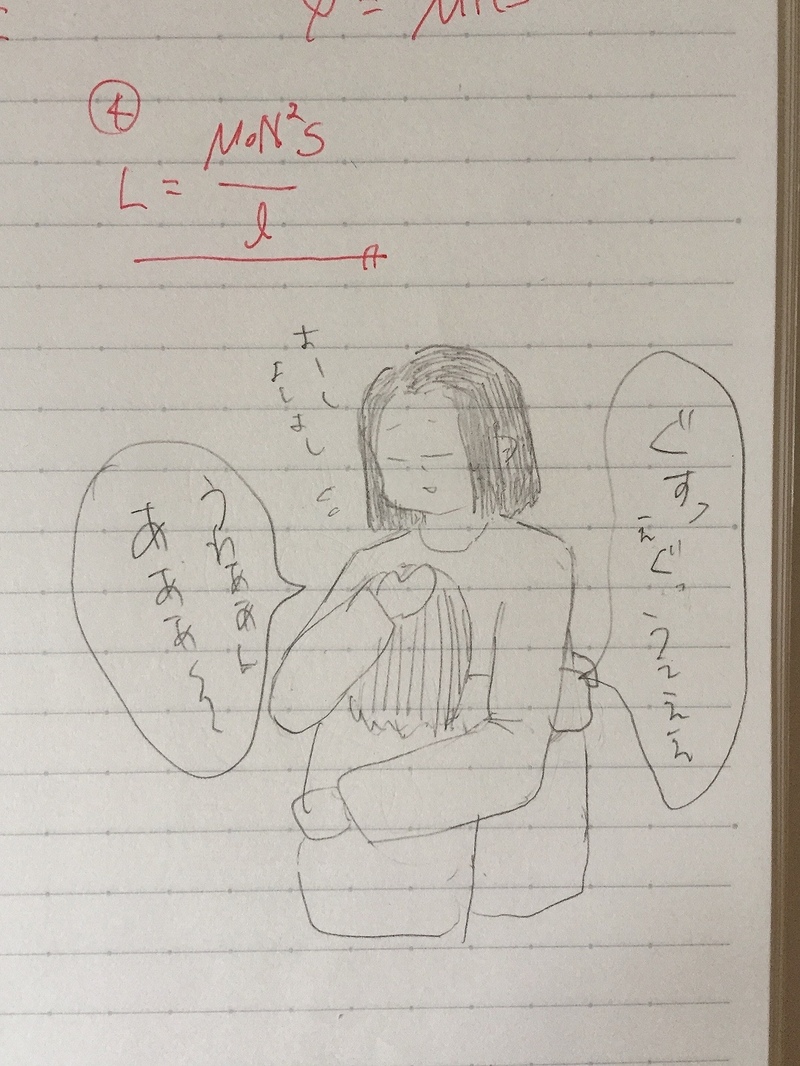 ④
L = μ₀N²S / l
よーし
よしよし
うわああん
あああ〜
ぐすっえぐっうええええ